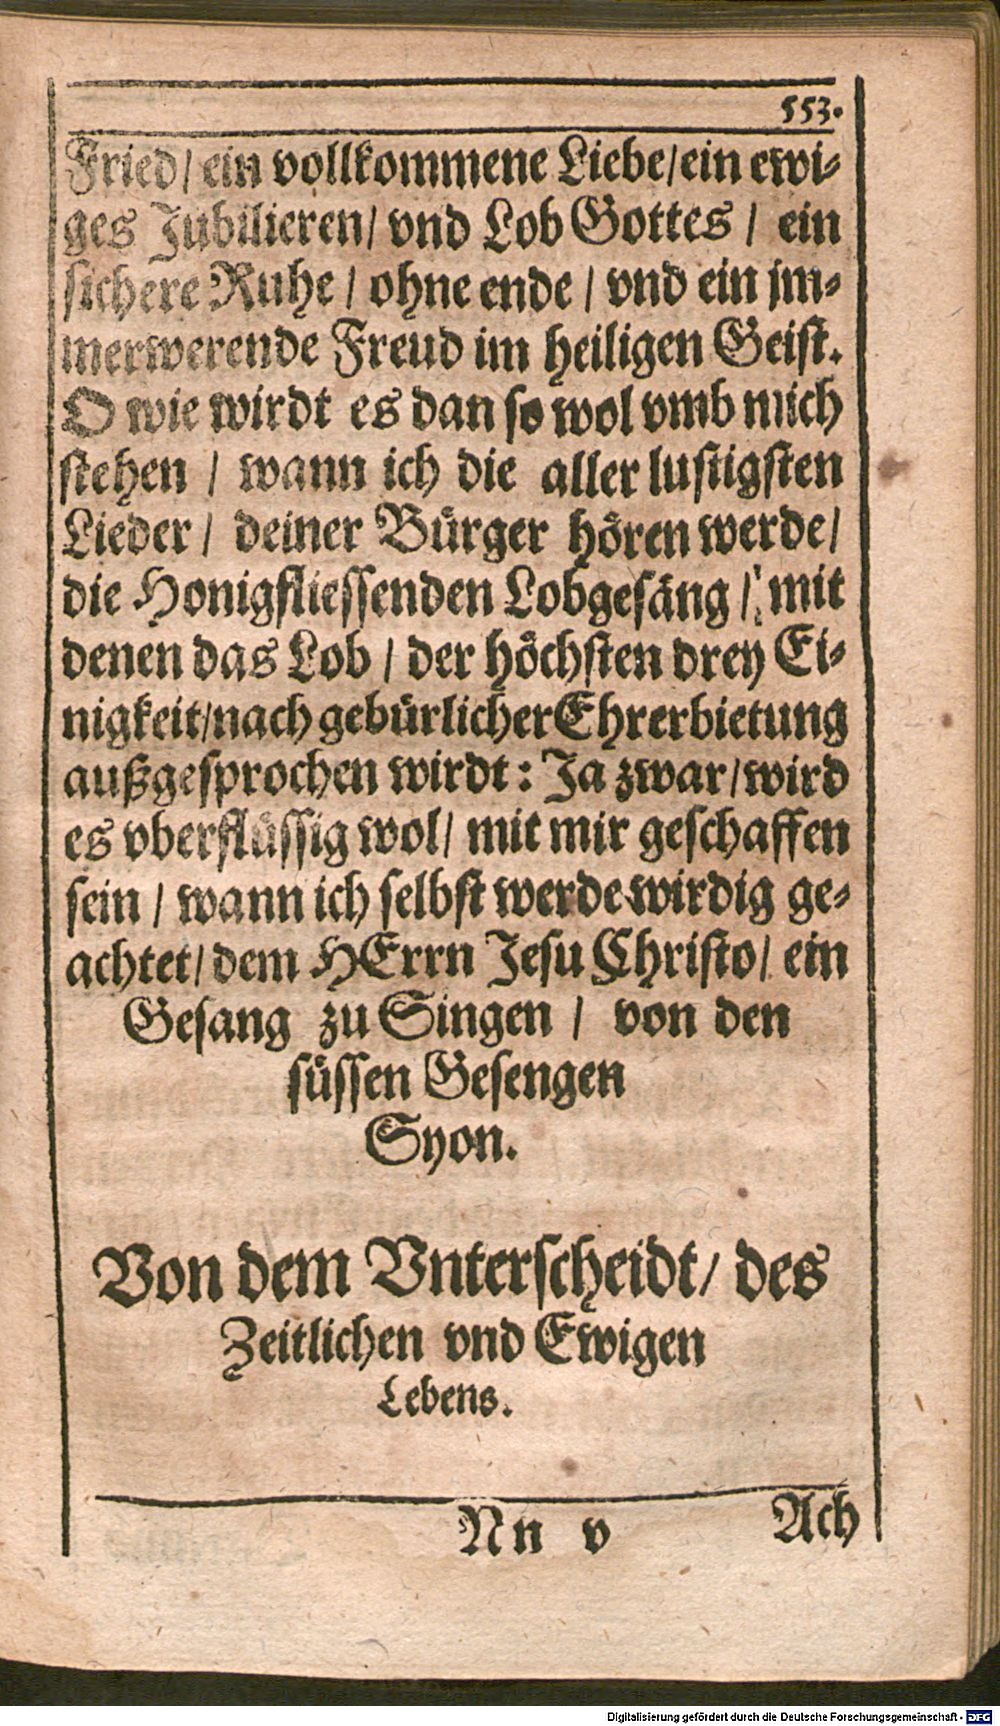 553.
Fried/ ein vollkommene Liebe/ein ewi-
ges Jubilieren/ vnd Lob Gottes / ein
sichere Ruhe / ohne ende / vnd ein jm-
merwerende Freud im heiligen Geist.
O wie wirdt es dan so wol vmb mich
stehen / wann ich die aller lustigsten
Lieder / deiner Bürger hören werde/
die Honigfliessenden Lobgesäng / mit
denen das Lob / der höchsten drey Ei-
nigkeit/nach gebürlicher Ehrerbietung
außgesprochen wirdt: Ja zwar/wird
es vberflüssig wol/ mit mir geschaffen
sein / wann ich selbst werde wirdig ge-
achtet/ dem HErrn Jesu Christo/ ein
Gesang zu Singen / von den
süssen Gesengen
Syon.
Von dem Vnterscheidt/ des
Zeitlichen vnd Ewigen
Lebens.
Nn v Ach
Digitalisierung gefördert durch die Deutsche Forschungsgemeinschaft - DFG